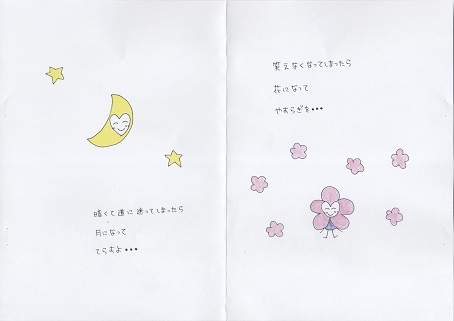 暗くて道に迷ってしまったら
月になって
てらすよ・・・
笑えなくなってしまったら
花になって
やすらぎを・・・